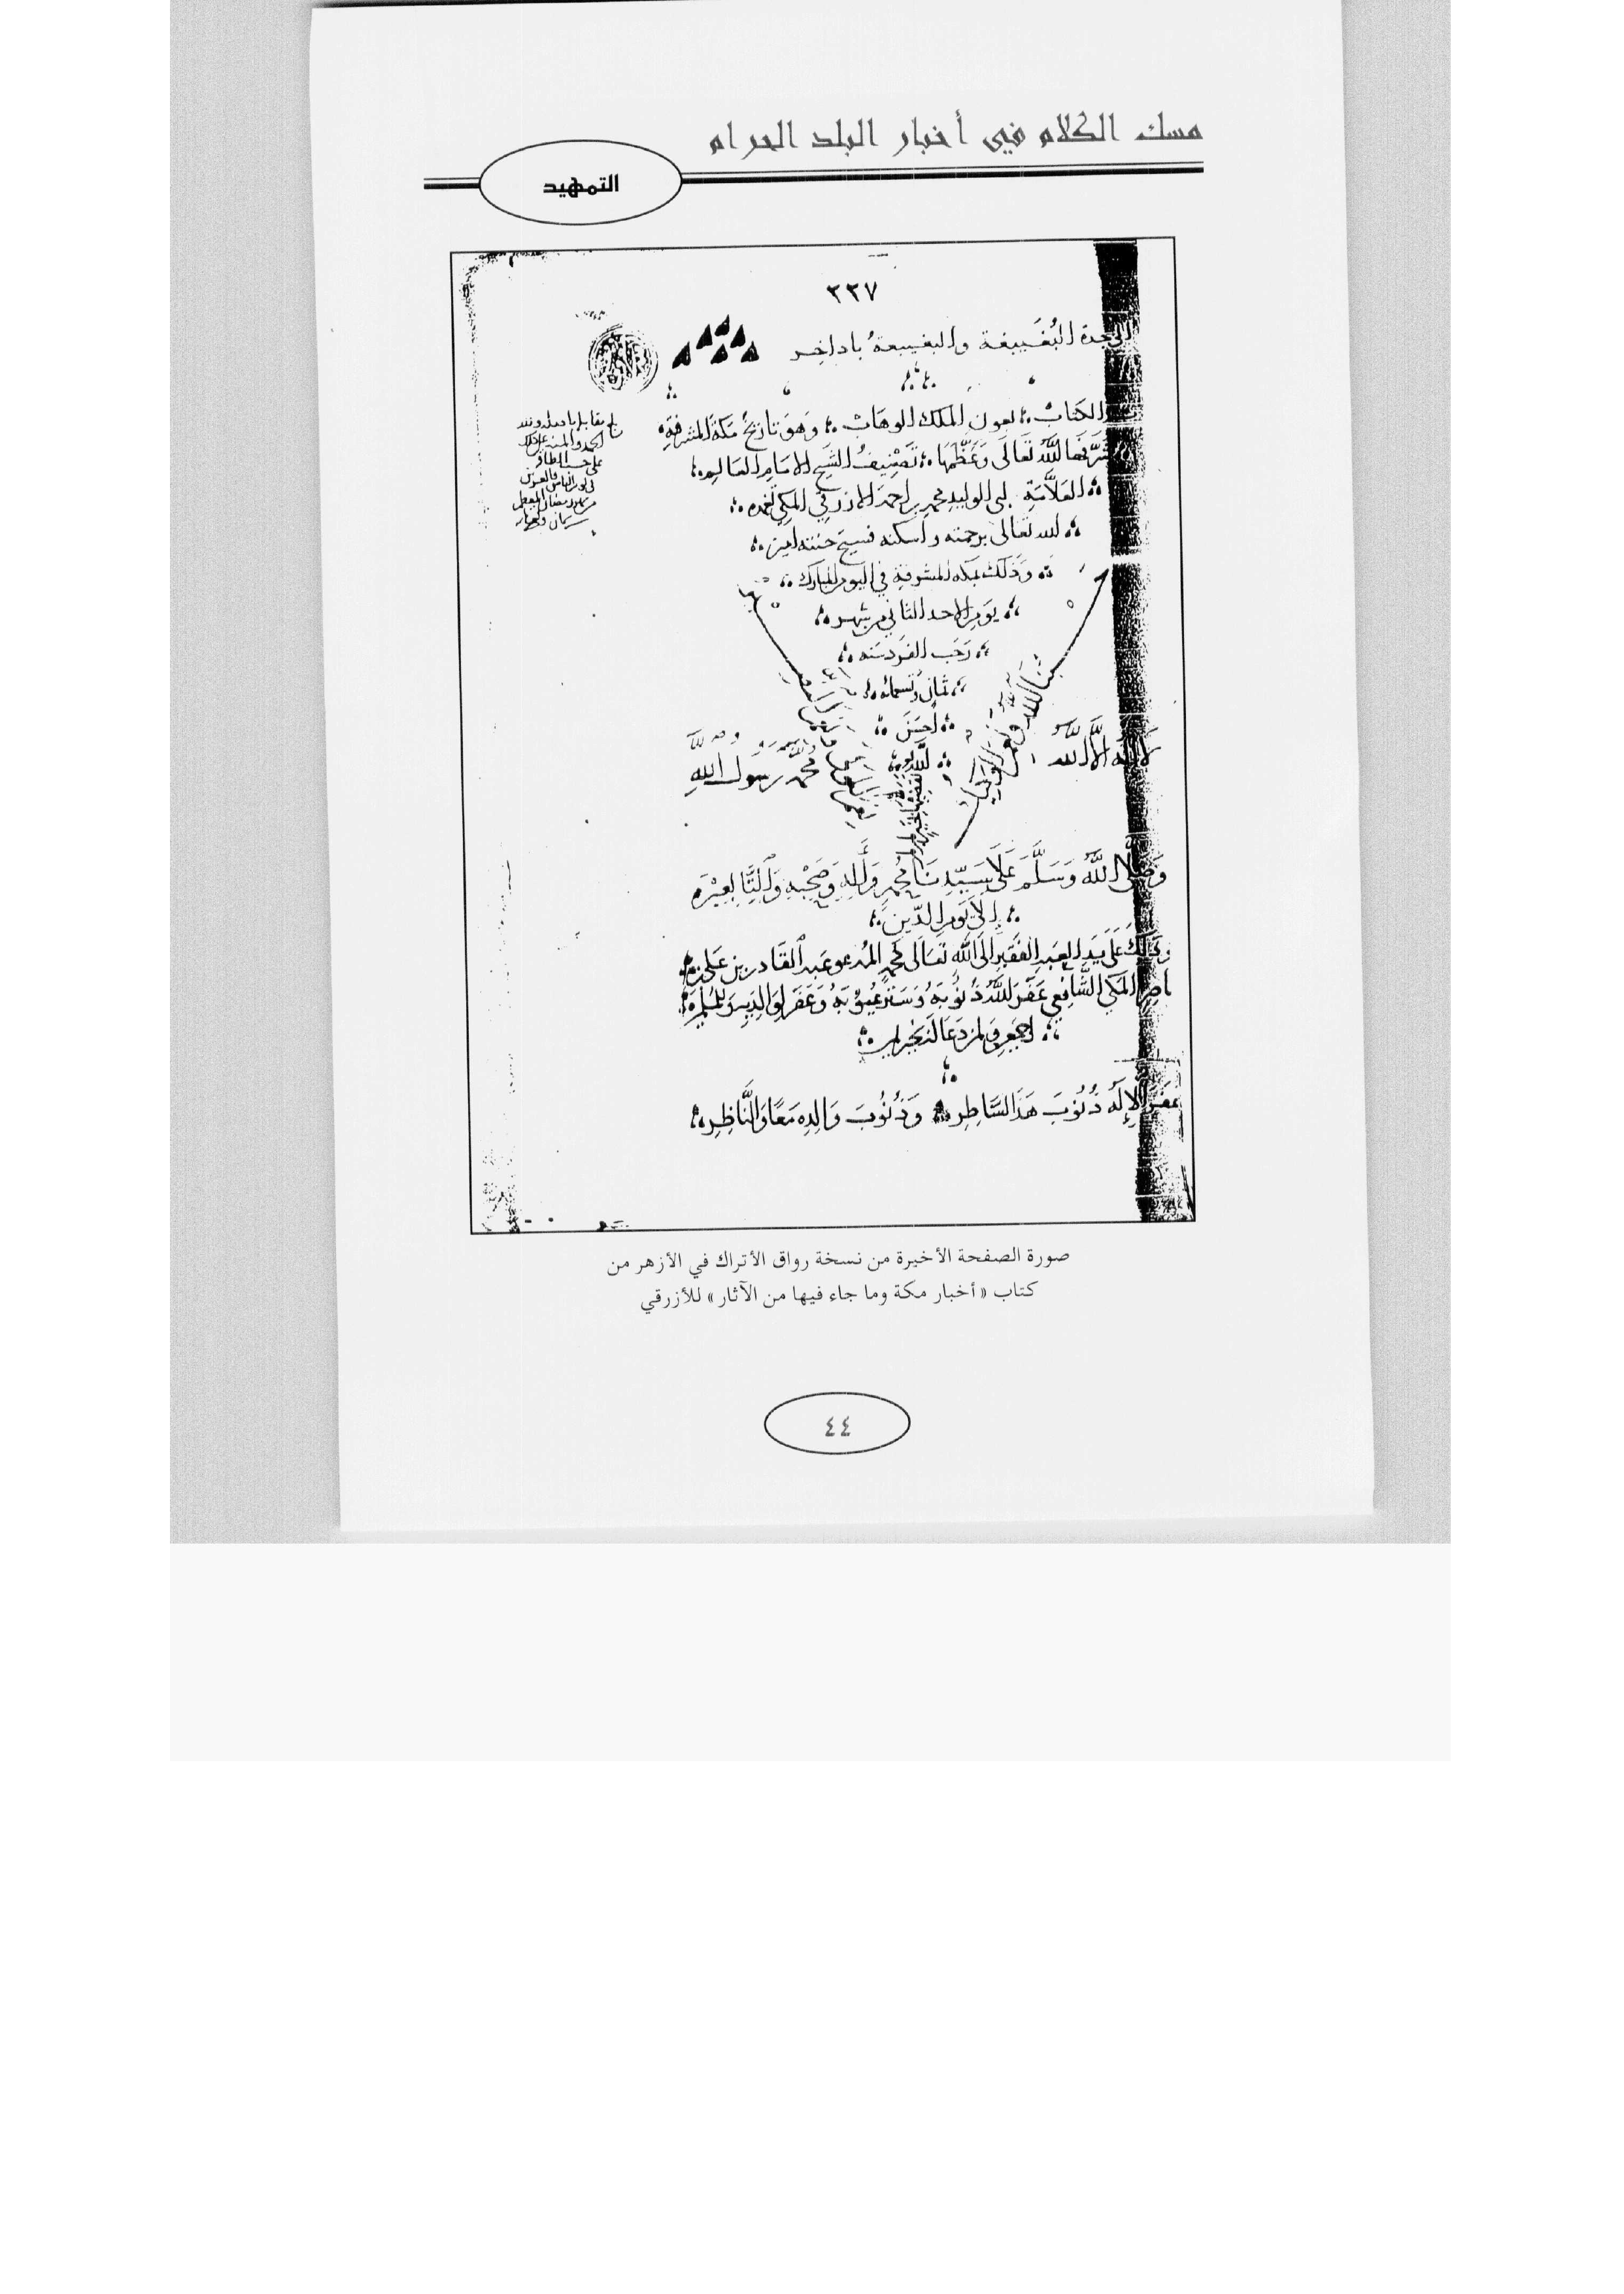 مسك الكلام في أخبار البلد الحرام
التمهيد
٣٣٧
البُغَيبغة والبغيبغةُ باداخر
الكتابْ بعون الملك الوهابْ وَهوَ تاريخ مكة المشرفةِ
شرَّفها اللهُ تَعَالَى وَعَظَّمَها تَصْنِيفُ الشيخ الامَامِ العَالِمِ
العَلاَّمَةِ ابى الوليد محمد بن احمدَ الازرقي المكي تغمده
الله تعالى برحمته واسكنه فسيح جنته امين
وَذلك بمكه المشرفة في اليوم المبارك
يَومِ الاحد الثاني من شهر
رَجَب الفرد سنه
ثمان وتسمائه
احسَنَ
الله
حسبنا الله ونعم الوكيل
لا إله الا الله
محمد رسول الله
وَصَلَّى اللَّهُ وَسَلَّمَ عَلَى سَيِّدِنَا مُحمدٍ وَآلِهِ وَصَحْبِهِ وَالتَّابِعِيْنَ
إلى يَومِ الدِّين
وَذَلكَ عَلَى يَدِ العَبدِ الفَقِيرِ الَى اللَّهِ تَعَالَى مُحمدٍ المدعو عَبد القَادر بن عَلى بن
ناصِرٍ المَكى الشَّافعى غَفَرَ اللَّهُ ذُنُوبَهُ وَسَتَرَ عُيُوْبَهُ وَغَفَرَ لِوَالِدَيهِ وَللمُسلِمِيْنَ
اجمعين ولمن دَعَا لَهُ بخير امين
غَفَرَ الإِلَهُ ذُنُوْبَ هَذَا السَّاطِرِ وَذُنُوْبَ وَالِدِهِ مَعًا وَالنَّاظِرِ
صورة الصفحة الأخيرة من نسخة رواق الأتراك في الأزهر من
كتاب «أخبار مكة وما جاء فيها من الآثار» للأزرقي
٤٤